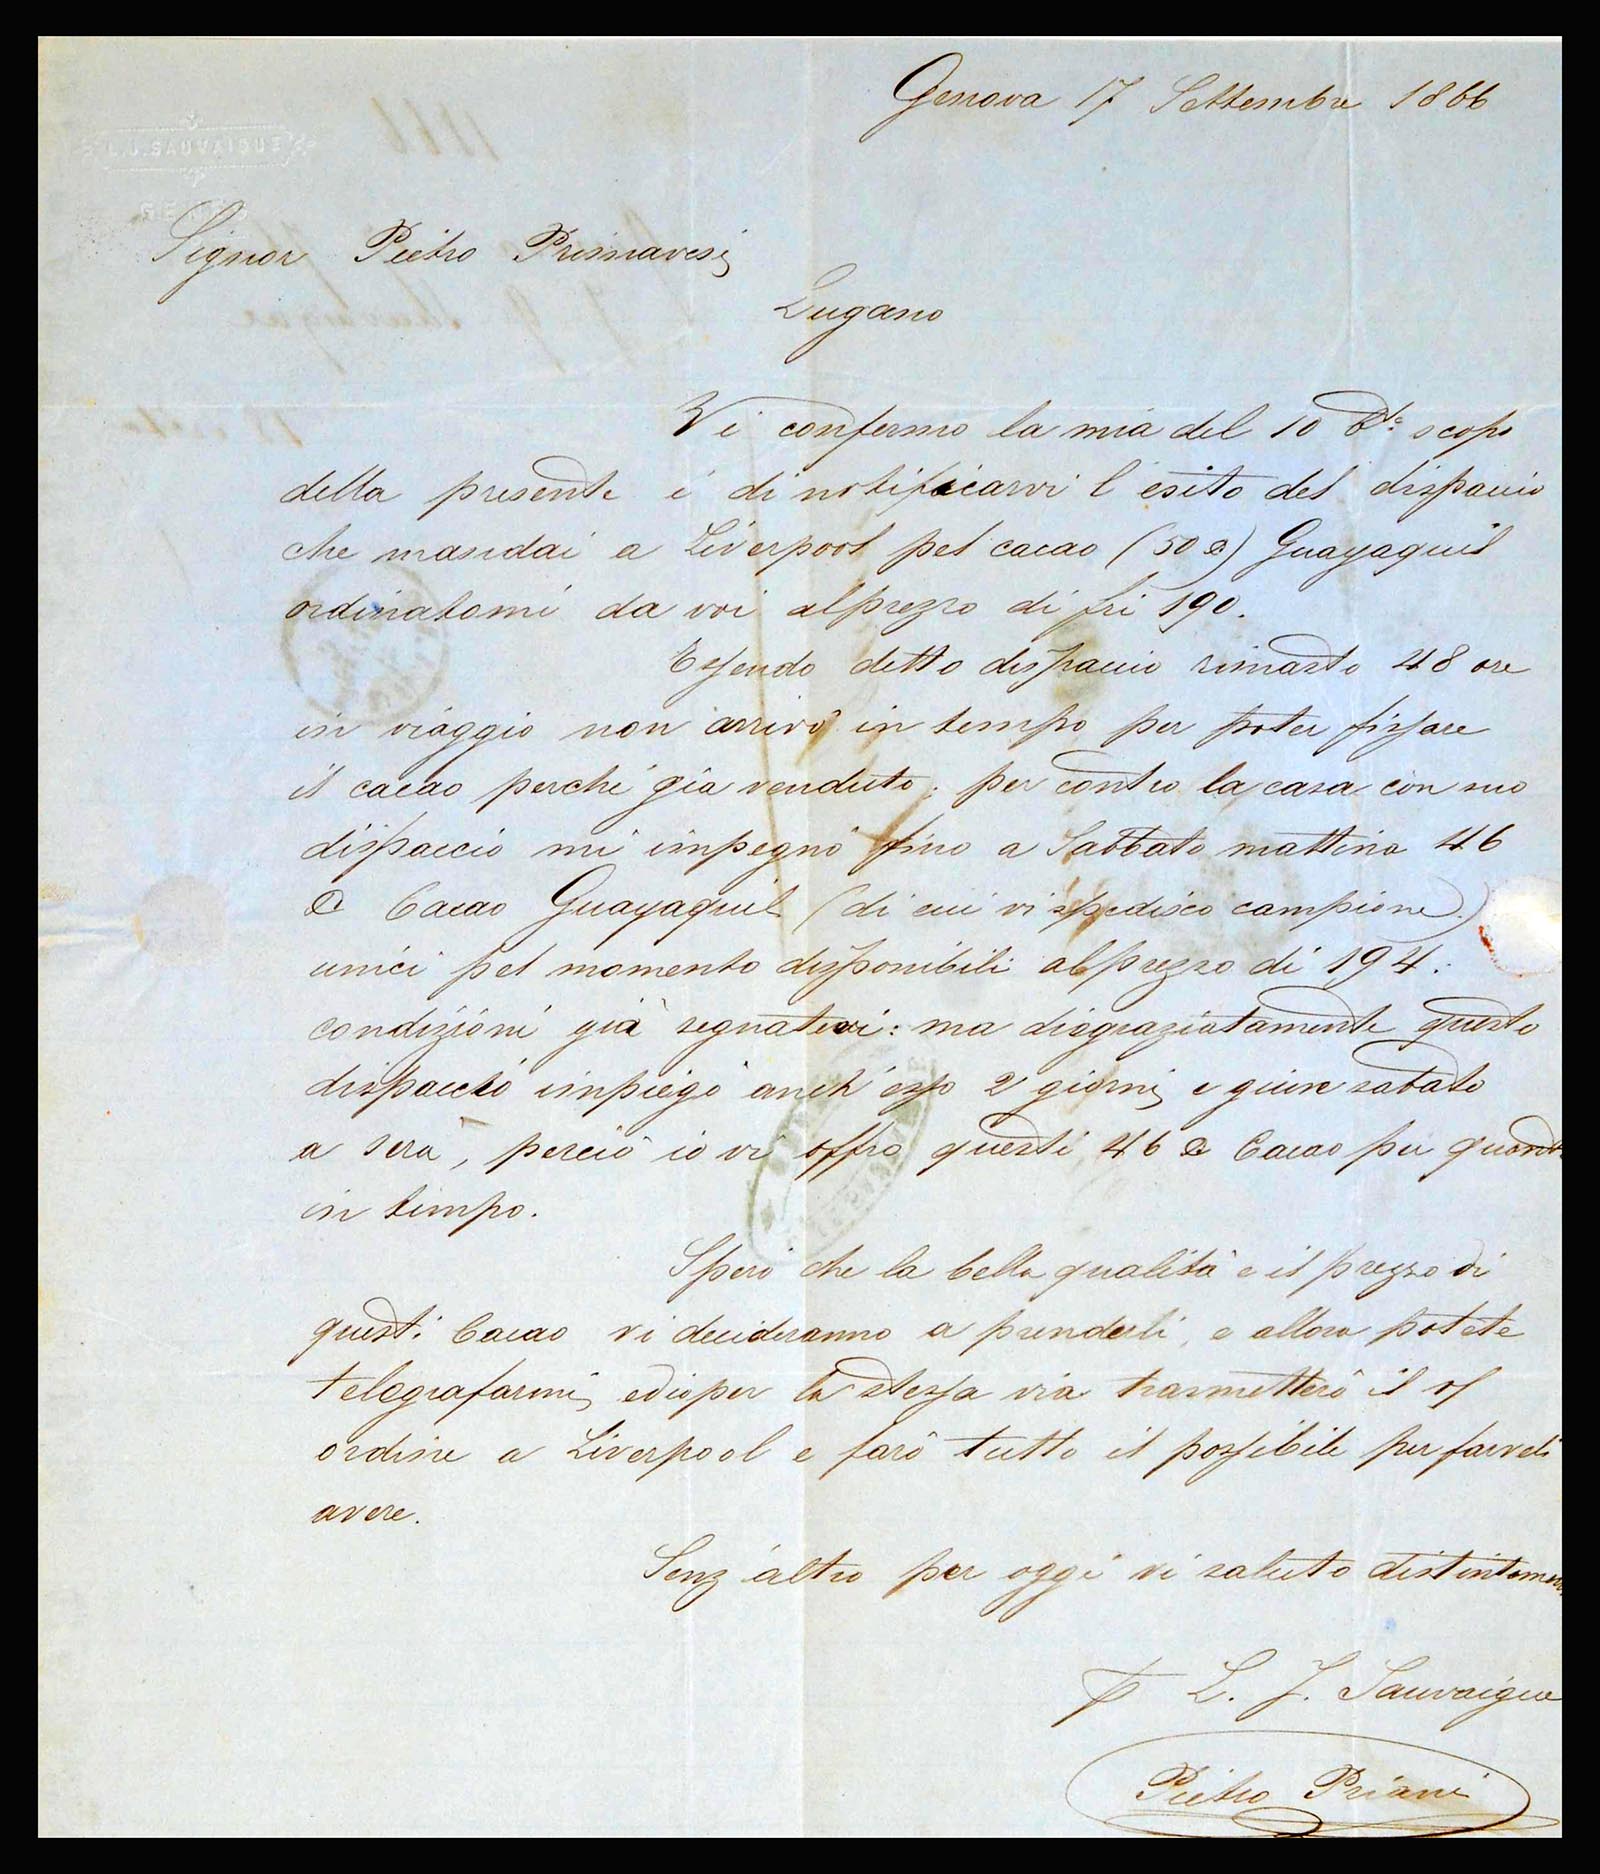 Genova 17 Settembre 1866
L. J. SAUVAIGUE
Signor Pietro Primavesi
Lugano
Vi confermo la mia del 10 scopo
della presente è di notificarvi l'esito del dispaccio
che mandai a Liverpool pel cacao (50 S) Guayaquil
ordinatomi da voi al prezzo di fri 190.
Essendo detto dispaccio rimasto 48 ore
in viaggio non arrivò in tempo per poter fissare
il cacao perchè già venduto; per contro la casa con suo
dispaccio mi impegnò fino a Sabbato mattina 46
S Cacao Guayaquil (di cui vi spedisco campione)
unici pel momento disponibili al prezzo di 194.
condizioni già segnatevi: ma disgraziatamente questo
dispaccio impiegò anch'esso 2 giorni e giunse sabato
a sera, perciò io vi offro questi 46 S Cacao per quanto
in tempo.
Spero che la bella qualità e il prezzo di
questi Cacao vi decideranno a prenderli, e allora potete
telegrafarmi, ed io per la stessa via trasmetterò il
ordine a Liverpool e farò tutto il possibile per farveli
avere.
Senz'altro per oggi vi saluto distintamen
L. J. Sauvaigue
Pietro Priani